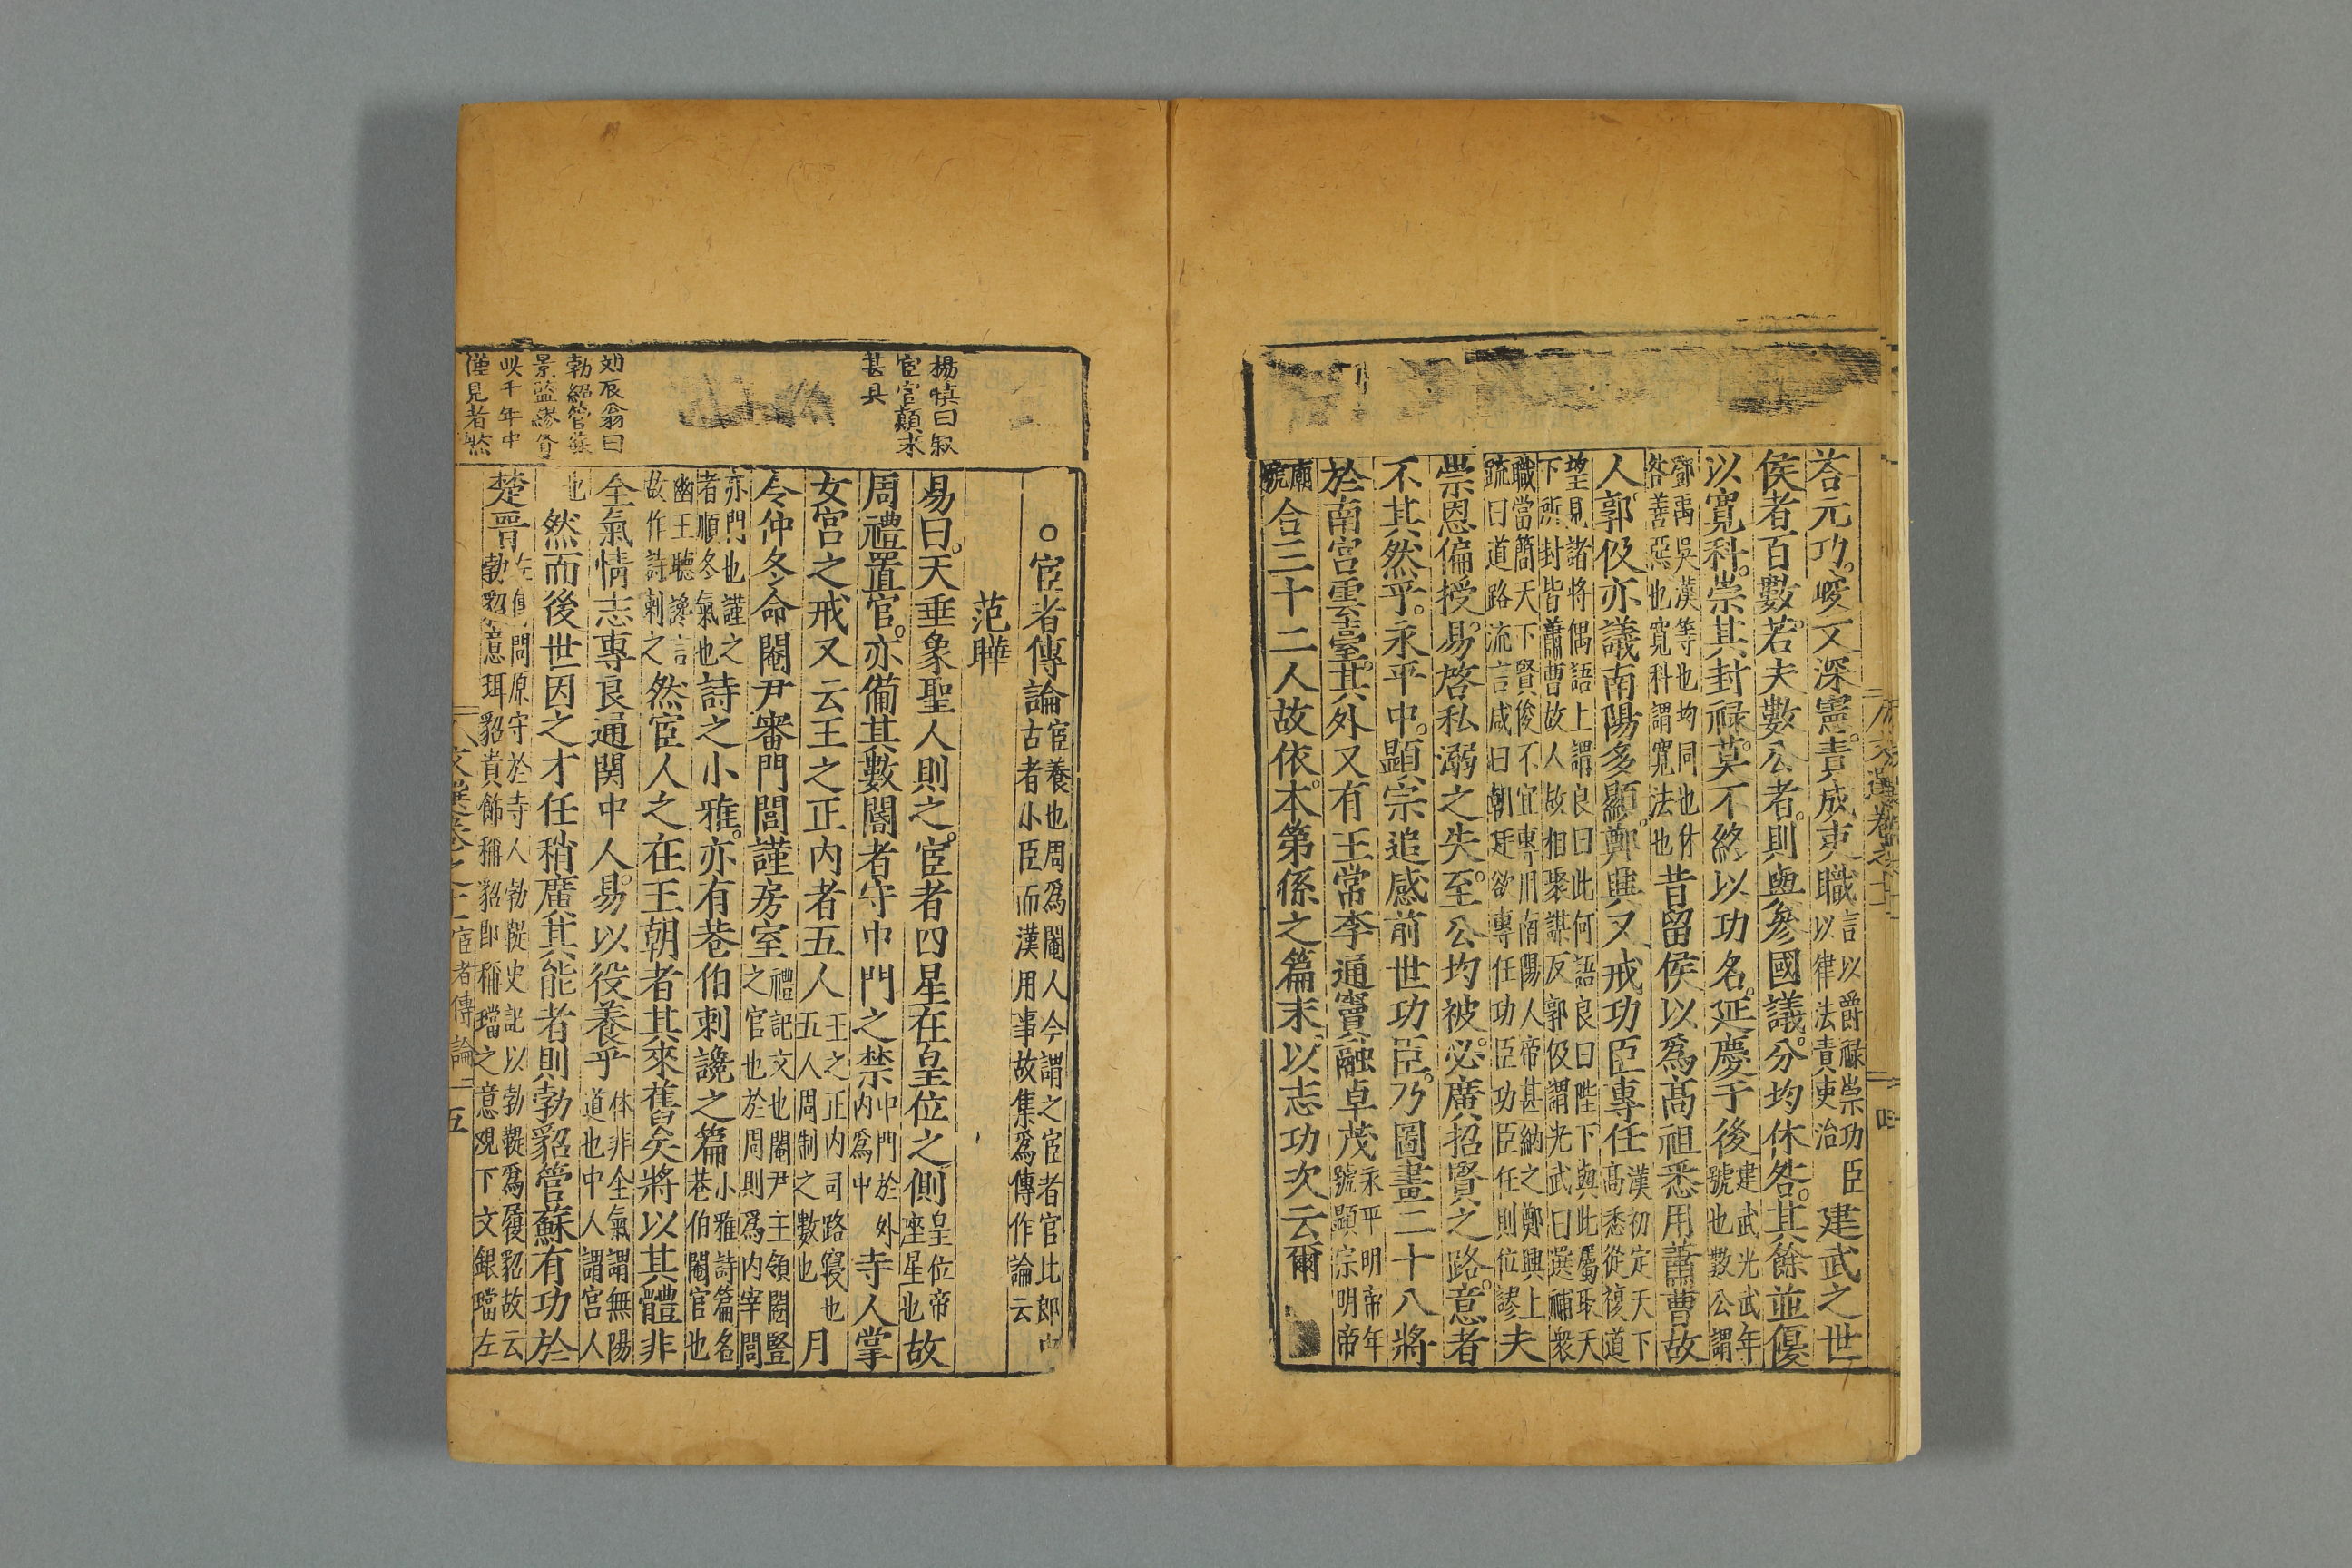 荅元功峻文深憲責成吏職言以爵祿崇功臣以律法責吏治建武之世
侯者百數若夫數公者則與參國議分均休咎其餘並優
以寬科崇其封祿莫不終以功名延慶于後建武光武年號也數公謂
鄧禹吳漢等也均同也休咎善惡也寬科謂寬法也昔留侯以爲高祖悉用蕭曹故
人郭伋亦議南陽多顯鄭興又戒功臣專任漢初定天下高悉從複道
望見諸將偶語上謂良曰此何語良曰陛下與此屬取天下所封皆蕭曹故人故相聚謀反郭伋謂光武曰選補衆
職當簡天下賢俊不宜專用南陽人帝甚納之鄭興上疏曰道路流言咸曰朝廷欲專任功臣功臣任則位謬夫
崇恩偏授易啓私溺之失至公均被必廣招賢之路意者
不其然乎永平中顯宗追感前世功臣乃圖畫二十八將
於南宮雲臺其外又有王常李通竇融卓茂永平明帝年號顯宗明帝
廟號合三十二人故依本第係之篇末以志功次云爾
四
○宦者傳論宦養也周爲閹人今謂之宦者官比郎中古者小臣而漢用事故集爲傳作論云
范曄
易曰天垂象聖人則之宦者四星在皇位之側皇位帝座星也故
周禮置官亦備其數閽者守中門之禁中門於外內爲中寺人掌
女宮之戒又云王之正內者五人王之正內司路寢也五人周制之數也月
令仲冬命閹尹審門閭謹房室禮記文也閹尹主領閹豎之官也於周則爲內宰門閭
亦門也謹之者順冬氣也詩之小雅亦有巷伯刺讒之篇小雅詩篇名巷伯閹官也
幽王聽讒言故作詩刺之然宦人之在王朝者其來舊矣將以其體非
全氣情志專良通関中人易以役養乎体非全氣謂無陽道也中人謂宮人
也然而後世因之才任稍廣其能者則勃貂管蘇有功於
楚晉左傳問原守於寺人勃鞮史記以勃鞮爲履貂故云勃貂意珥貂貴飾稱貂即稱璫之意覌下文銀璫左
文選卷之十二宦者傳論 五
楊慎曰叙
宦官顛末
甚具
刘辰翁曰
勃貂管蘇
景監繆賢
此千年中
僅見者然